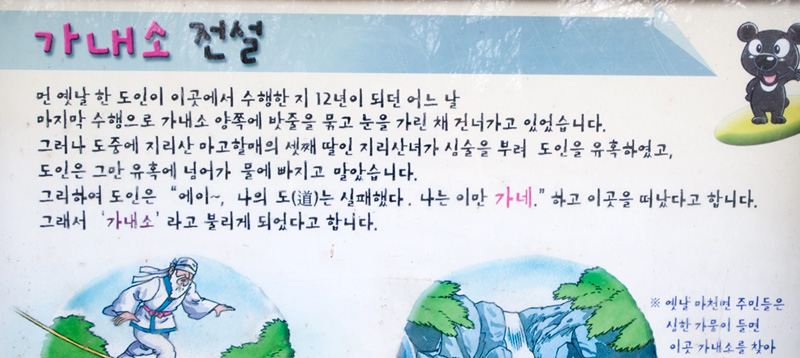 가내소 전설
먼 옛날 한 도인이 이곳에서 수행한 지 12년이 되던 어느 날
마지막 수행으로 가내소 양쪽에 밧줄을 묶고 눈을 가린 채 건너가고 있었습니다.
그러나 도중에 지리산 마고할매의 셋째 딸인 지리산녀가 심술을 부려 도인을 유혹하였고,
도인은 그만 유혹에 넘어가 물에 빠지고 말았습니다.
그리하여 도인은 “에이~, 나의 도(道)는 실패했다. 나는 이만 가네.” 하고 이곳을 떠났다고 합니다.
그래서 ‘가내소’ 라고 불리게 되었다고 합니다.
※ 옛날 마천면 주민들은
심한 가뭄이 들면
이곳 가내소를 찾아